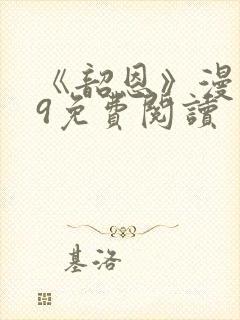 《韶恩》漫
9免費閱讀
基洛